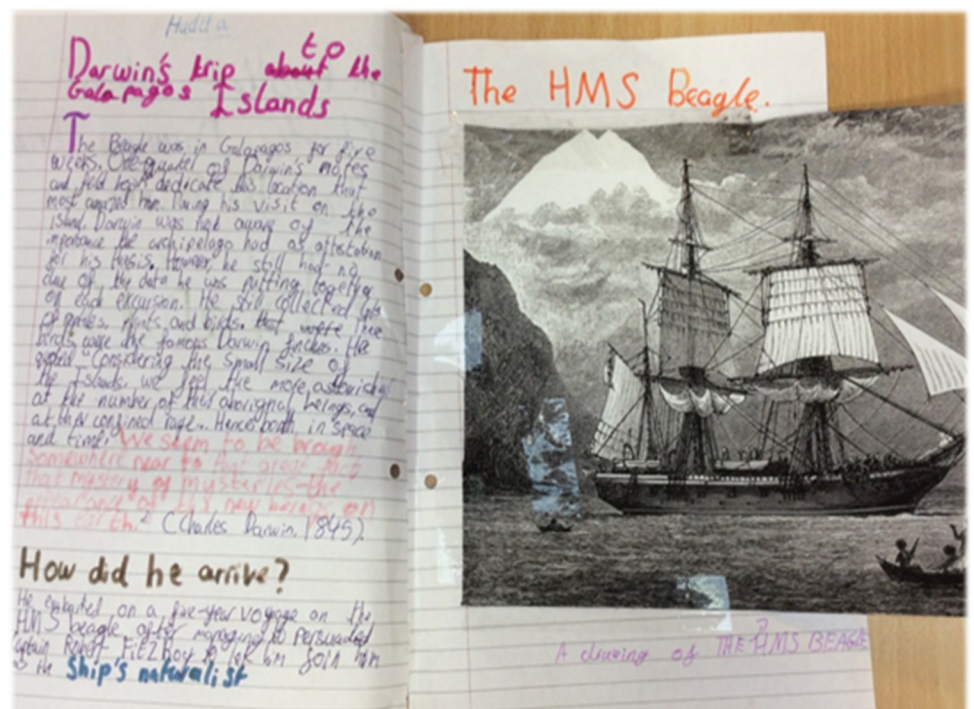 Hudda
to
Darwin's trip about the
Galapagos Islands
The Beagle was in Galapagos for five
weeks. One quarter of Darwin's notes
and field dedicate this location that
most him. During his visit on the
island, Darwin was not aware of the
the archipelago had as
for his thesis. However, he still had no
clue of the data he was putting together
on each excursion. He still collected lots
of and birds. that were the
birds were the famous Darwin finches. He
"Considering the small size of
the Islands, we feel the more astonished
at the number of beings, and
at they confined range.. Hence both in space
and time, We seem to be brough
Somewhere near to that great fact
that mystery of mysteries-the
of new beings on
this earth." (Charles Darwin, 1845).
How did he arrive?
He embarked on a five-year voyage on the
HMS beagle after managing to persuaded
captain Robert FitzRoy to let him join him
as the Ship's naturalist
The HMS Beagle.
A drawing of THE HMS BEAGLE